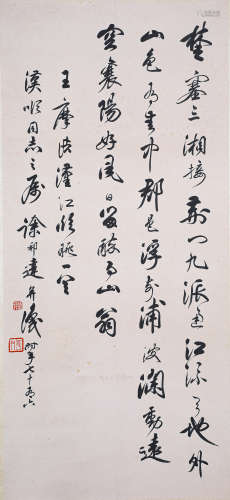 楚塞三湘接荆门九派通江流天地外
山色有无中郡邑浮前浦波澜動遠
空襄陽好风日留醉与山翁
王摩诘漢江临眺
同志之属徐邦達并识时年七十六